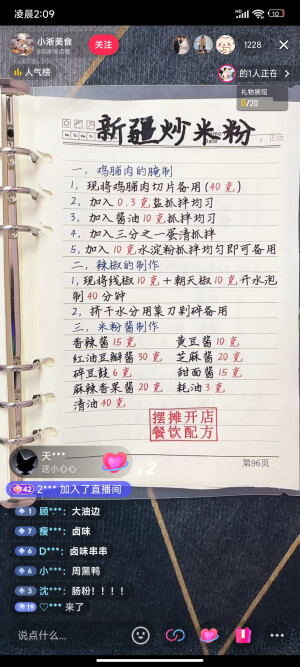 凌晨2:09
10
小淅美食
610本场点赞
关注
1228
人气榜
的1人正在
礼物展馆
0/20
新疆炒米粉
一，鸡脯肉的腌制
1，现将鸡脯肉切片备用(40克)
2，加入0.3克盐抓拌均匀
3，加入酱油10克抓拌均匀
4，加入三分之一蛋清抓拌
5，加入10克水淀粉抓拌均匀即可备用
二，辣椒的制作
1，现将线椒10克＋朝天椒10克开水泡
制40分钟
2，挤干水分用菜刀剁碎备用
三，米粉酱制作
香辣酱15克 黄豆酱10克
红油豆瓣酱30克 芝麻酱20克
碎豆豉6克 甜面酱15克
麻辣香菜酱20克 耗油3克
清油40克
摆摊开店
餐饮配方
第96页
天***
送小心心
x2
42 2*** 加入了直播间
1 顾***：大油边
7 瘦***：卤味
6 D***：卤味串串
6 小***：周黑鸭
3 沈***：肠粉！！！！
19 ♡*** 来了
说点什么...